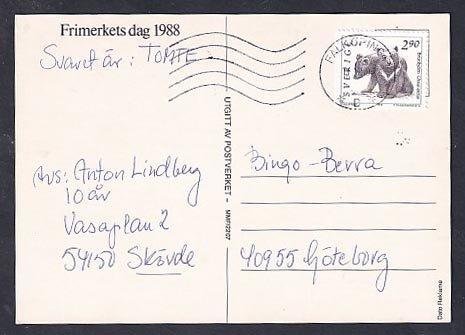 Frimerkets dag 1988
Svaret är: TOMTE
FALKÖPING
SVERIGE
D
2.90
UTGITT AV POSTVERKET - MMF/2207
Avs: Anton Lindberg
10 år
Vasaplan 2
54150 Skövde
Bingo-Berra
40955 Göteborg
Dato Reklame